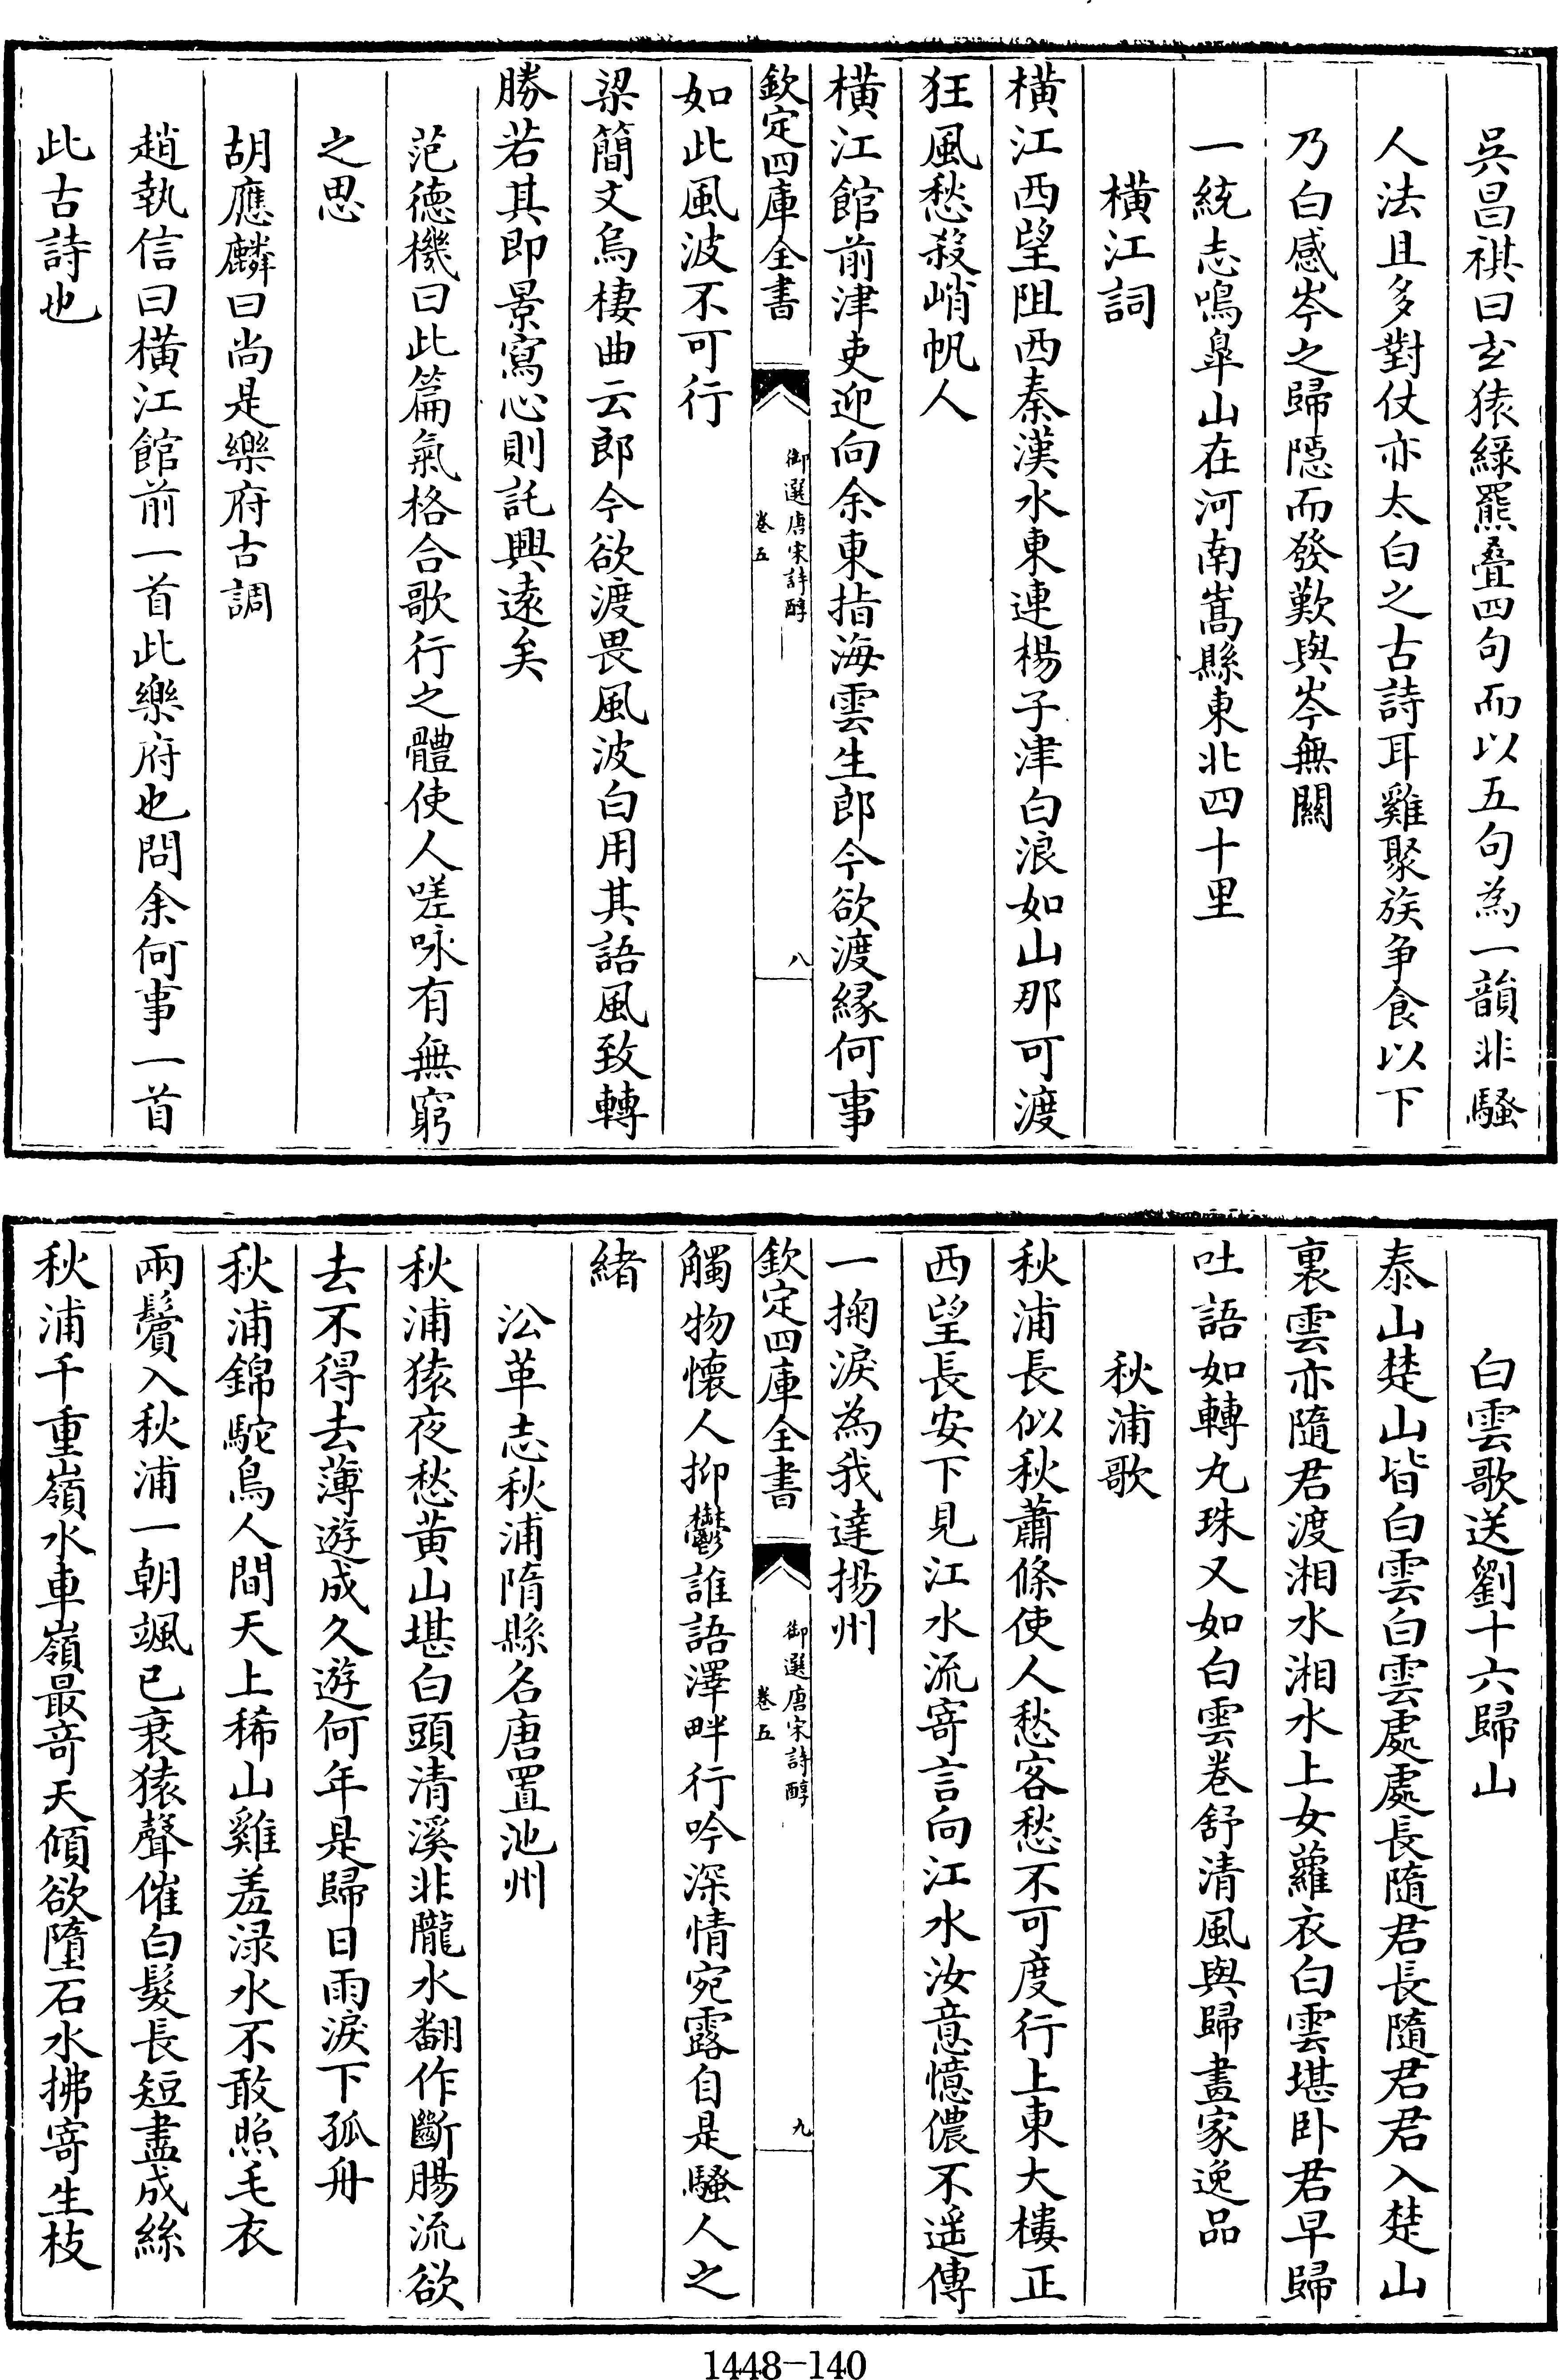 吳昌祺曰玄猿綠羆疊四句而以五句為一韻非騷
人法且多對仗亦太白之古詩耳雞聚族争食以下
乃白感岑之歸隱而發歎與岑無關
一統志鳴臯山在河南嵩縣東北四十里
橫江詞
橫江西望阻西秦漢水東連楊子津白浪如山那可渡
狂風愁殺峭帆人
橫江館前津吏迎向余東指海雲生郎今欲渡緣何事
欽定四庫全書
御選唐宋詩醇
卷五
八
如此風波不可行
梁簡文烏棲曲云郎今欲渡畏風波白用其語風致轉
勝若其即景寫心則託興遠矣
范德機曰此篇氣格合歌行之體使人嗟咏有無窮
之思
胡應麟曰尚是樂府古調
趙執信曰橫江館前一首此樂府也問余何事一首
此古詩也
白雲歌送劉十六歸山
泰山楚山皆白雲白雲處處長隨君長隨君君入楚山
裏雲亦隨君渡湘水湘水上女蘿衣白雲堪卧君早歸
吐語如轉丸珠又如白雲卷舒清風與歸畫家逸品
秋浦歌
秋浦長似秋蕭條使人愁客愁不可度行上東大樓正
西望長安下見江水流寄言向江水汝意憶儂不遥傳
一掬淚為我達揚州
欽定四庫全書
御選唐宋詩醇
卷五
九
觸物懷人抑鬱誰語澤畔行吟深情宛露自是騷人之
緒
㳂革志秋浦隋縣名唐置池州
秋浦猿夜愁黃山堪白頭清溪非隴水翻作斷腸流欲
去不得去薄遊成久遊何年是歸日雨淚下孤舟
秋浦錦駝鳥人間天上稀山雞羞淥水不敢照毛衣
兩鬢入秋浦一朝颯已衰猿聲催白髮長短盡成絲
秋浦千重嶺水車嶺最竒天傾欲墮石水拂寄生枝
1448-140